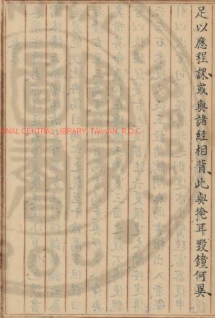 足以應程課或與諸經相背此與掩耳毀鏡何異
NATIONAL CENTRAL LIBRARY, TAIWAN, R.O.C.